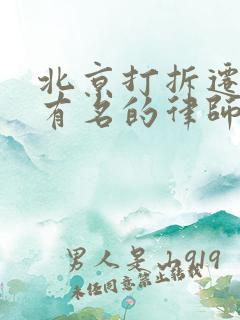 北京打拆迁
有名的律师
男人是山919
未经同意禁止转载